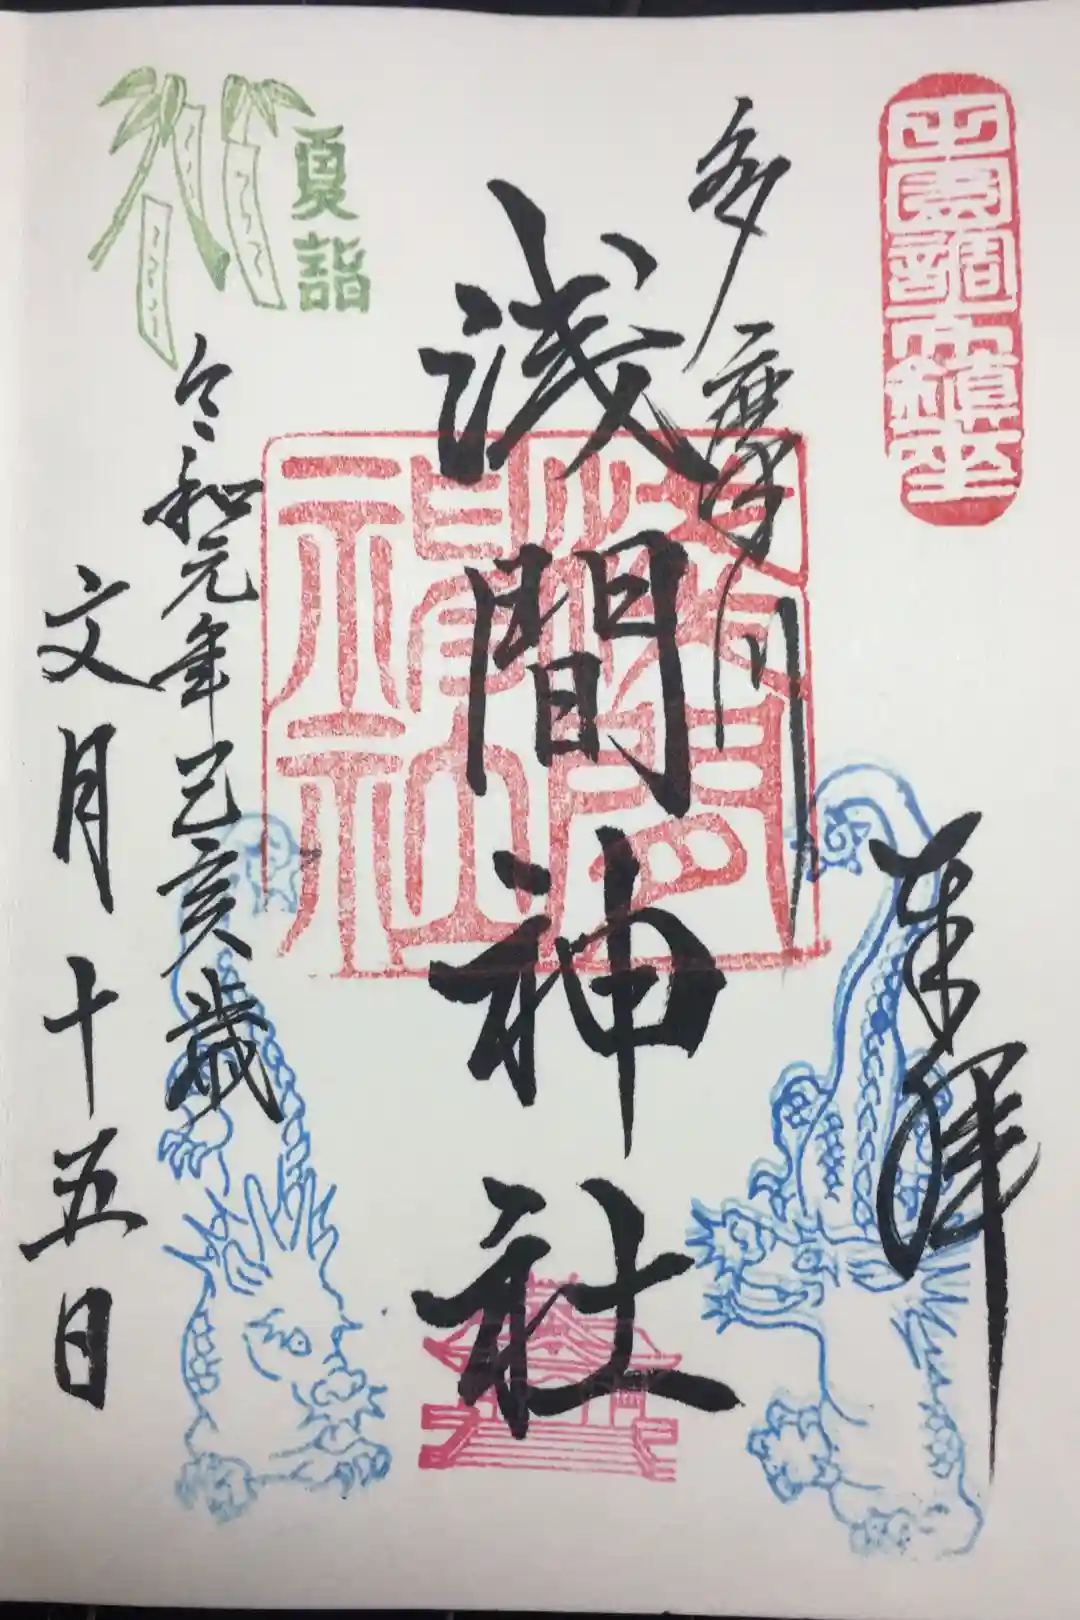 田園調布鎮座
奉拝
多摩川
浅間神社
浅間神社
夏詣
令和元年己亥歳
文月十五日